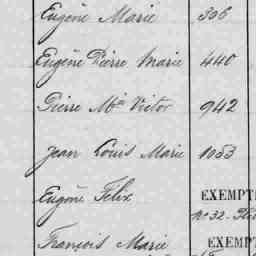 Eugène Marie 306
Eugène Pierre Marie 440
Pierre Mie Victor 942
Jean Louis Marie 1053
Eugène Félix EXEMPT
No 32.
François Marie EXEMPT